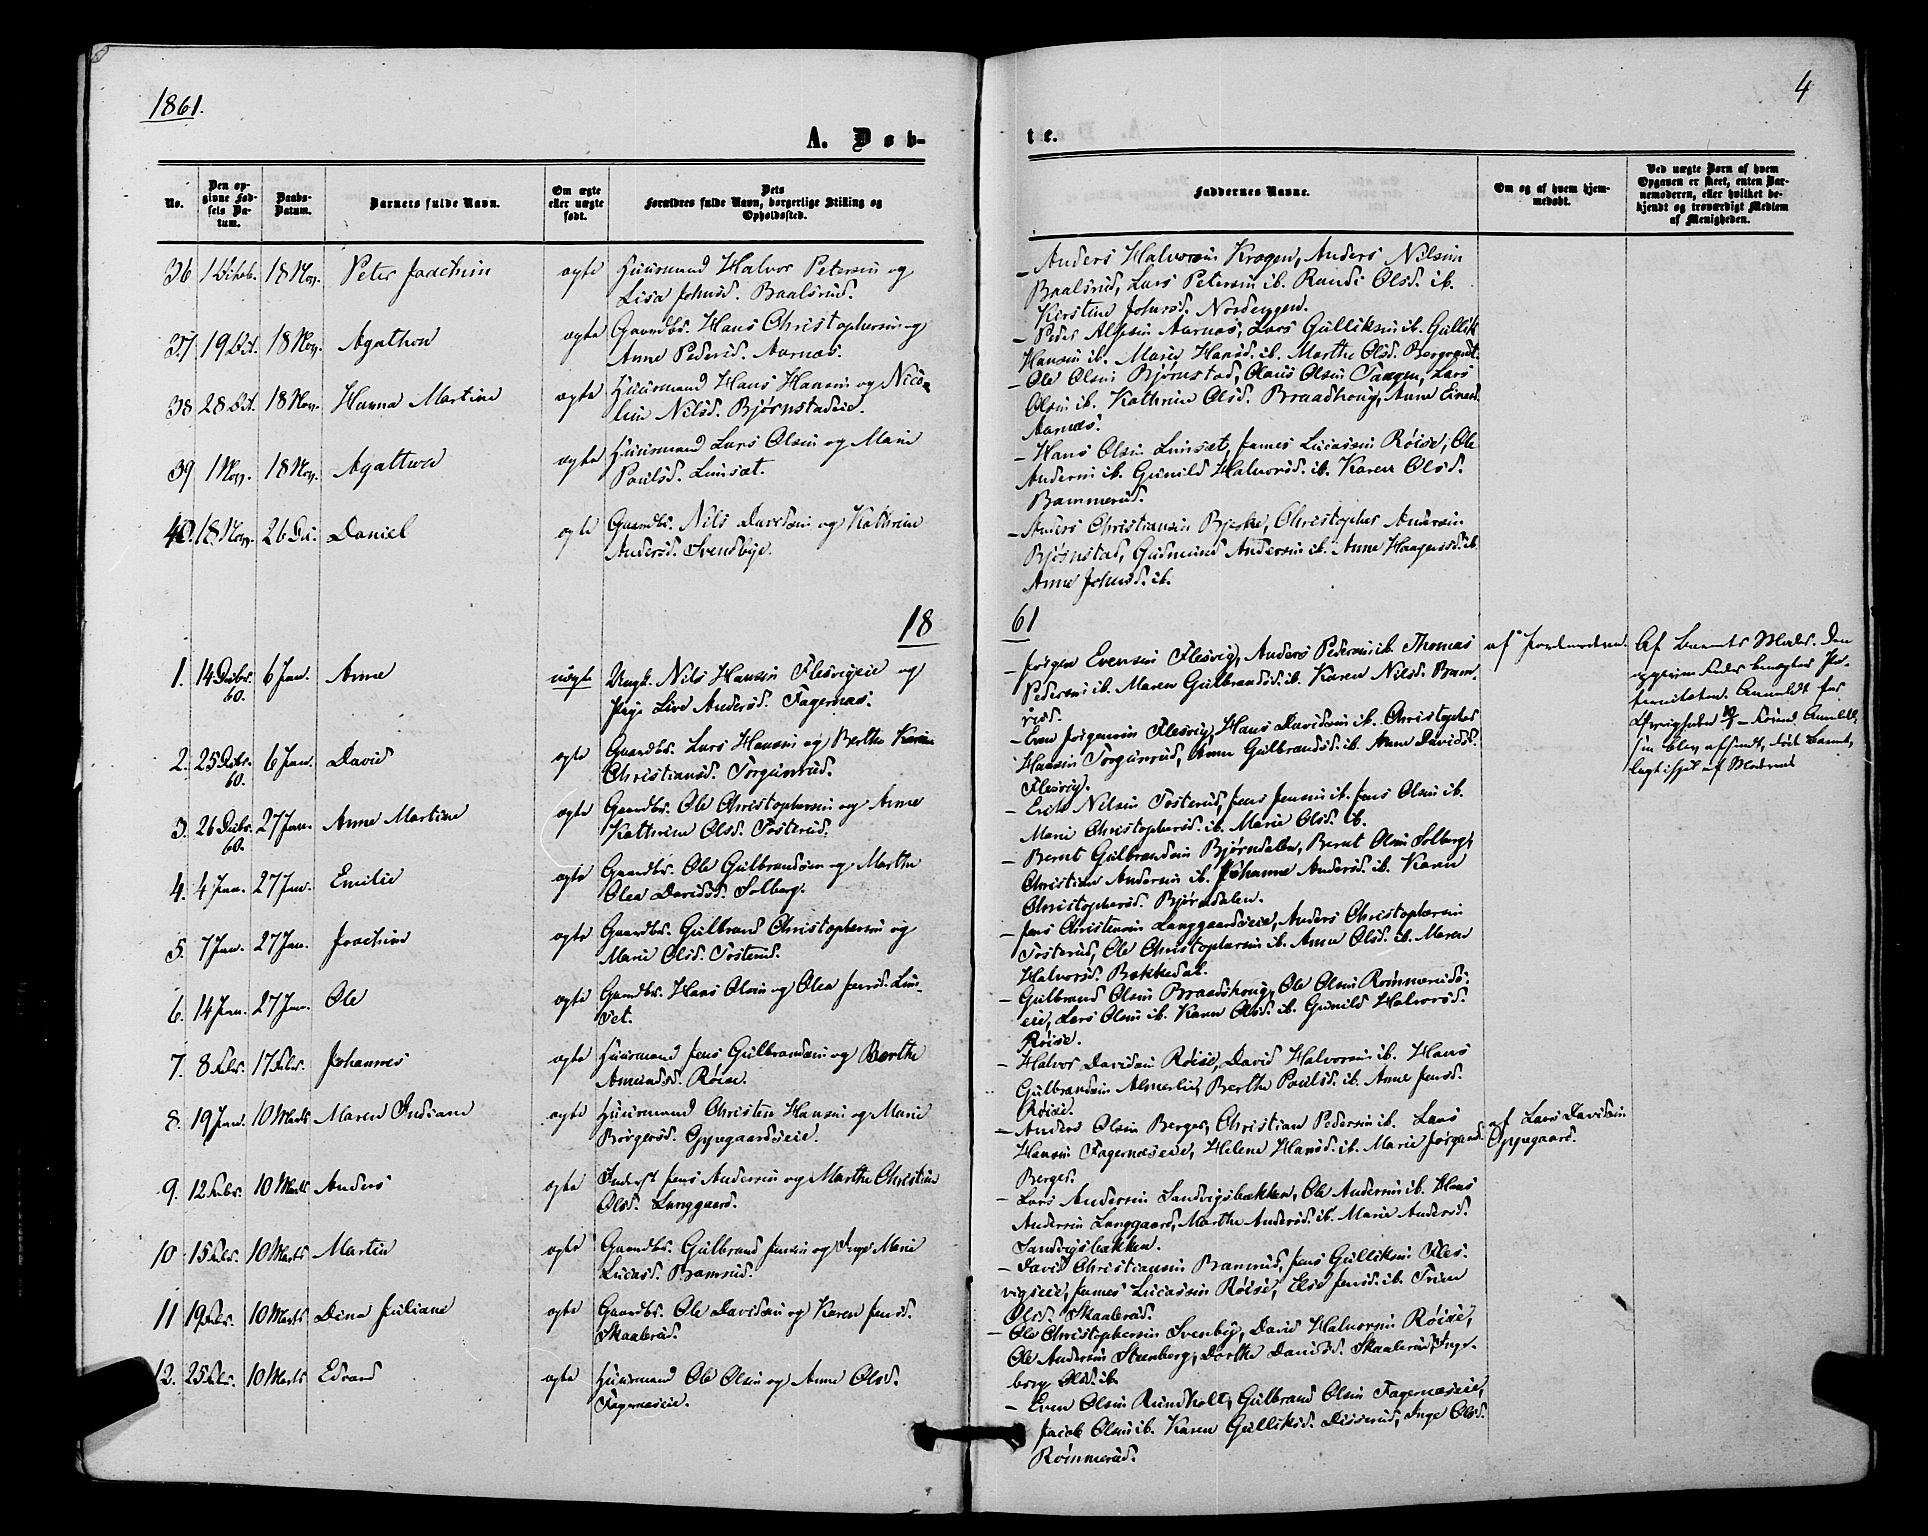 1861.
4
A. Døb-
te.
No.
Den op-
givne Fød-
sels Da-
tum.
Daabs-
Datum.
Barnets fulde Navn.
Om ægte
eller uægte
født.
Dets
Forældres fulde Navn, borgerlige Stilling og
Opholdssted.
Faddernes Navne.
Om og af hvem hjem-
medøbt.
Ved uægte Børn af hvem
Opgaven er skeet, enten Bar-
nemoderen, eller hvilket be-
kjendt og troværdigt Medlem
af Menigheden.
36 18 Nov. Peter Joachim ægte Huusmand Halvor Petersen og
Lisa Johnsd. Baalsrud.
- Anders Halvorsen Krogen, Anders Nilsen
Baalsrud, Lars Petersen ib. Randi Olsd. ib.
Kirstine Johnsd. Nordengen.
37 19 Oct. 18 Nov. Agathon ægte Gaardbr. Hans Christophersen og
Anne Pedersd. Aarnæs.
- Peder Alfsen Aarnæs, Lars Gulliksen ib. Gullik
Hansen ib. Marie Hansd. ib. Marthe Olsd.
38 28 Oct. 18 Nov. Hanna Martine ægte Huusmand Hans Hansen og Nico-
line Nilsd. Bjørnstadeie.
- Ole Olsen Bjørnstad, Olaus Olsen Tangen, Lars
Olsen ib. Kathrine Olsd. Braadhoug, Anne
Aarnæs.
39 1 Nov. 18 Nov. Agathon ægte Huusmand Lars Olsen og Marie
Paulsd. Linsæt.
- Hans Olsen Linsæt, James Lucassen Røise, Ole
Andersen ib. Gunild Halvorsd. ib. Karen Olsd.
Bammerud.
40. 18. Nov. 26 Dec. Daniel ægte Gaardbr. Nils Davidsen og Kathrine
Andersd. Svendbye.
- Anders Christiansen Bjerke, Christopher Andersen
Bjørnstad, Gudmund Andersen ib. Anne Haagensd. ib.
Anne Johnsd. ib.
18 61
1. 14 Decbr. 60. 6 Jan. Anne uægte Ungk. Nils Hansen Flesvigeie og
Pige Live Andersd. Fagernæs.
- Jørgen Evensen Flesvig, Anders Pedersen ib. Thomas
Pedersen ib. Maren Gulbrandsd. ib. Karen Nilsd. Bam-
rud.
af Jordmoderen.
Af Barnets Moder. Den
opgivne Fader benegter Pa-
terniteten. Anmeldt for
Øvrigheden
blev afsendt, døde Barnet,
af Moderen
2. 25 Decbr. 60. 6 Jan. David ægte Gaardbr. Lars Hansen og Berthe Karine
Christiansd. Torgunrud.
- Even Jørgensen Flesvig, Hans Davidsen ib. Christopher
Hansen Torgunrud, Anne Gulbrandsd. ib. Anne Davidsd.
Flesvig.
3. 26 Decbr. 60. 27 Jan. Anne Martine ægte Gaardbr. Ole Christophersen og Anne
Kathrine Olsd. Tosterud.
- Erik Nilsen Tosterud, Jens Jensen ib. Jens Olsen ib.
Marie Christophersd. ib. Marie Olsd. ib.
4. 4 Jan. 27 Jan. Emilie ægte Gaardbr. Ole Gulbrandsen og Marthe
Olea Davidsd. Solberg.
- Bernt Gulbrandsen Bjørndalen, Bernt Olsen Solberg,
Christian Andersen ib. Johanne Andersd. ib. Karen
Christophersd. Bjørndalen.
5. 7 Jan. 27 Jan. Joachim ægte Gaardbr. Gulbrand Christophersen og
Marie Olsd. Tosterud.
- Jens Christensen Langgaardseie, Anders Christophersen
Tosterud, Ole Christophersen ib. Anne Olsd. ib. Maren
Halvorsd. Bækkedal.
6. 14 Jan. 27 Jan. Ole ægte Gaardbr. Hans Olsen og Olea Jensd. Lin-
set.
- Gulbrand Olsen Braadhoug, Ole Olsen Rømmeruds-
eie, Lars Olsen ib. Karen Olsd. ib. Gunild Halvorsd.
Røise.
7. 8 Febr. 17 Febr. Johannes ægte Huusmand Jens Gulbrandsen og Berthe
Amundsd. Røise.
- Halvor Davidsen Røise, David Halvorsen ib. Hans
Gulbrandsen Almerlie, Berthe Paulsd. ib. Anne Jensd.
Røise.
8. 19 Jan. 10 Marts Maren Indiane ægte Huusmand Christen Hansen og Marie
Børgersd. Oppegaardseie.
- Anders Olsen Berger, Christian Pedersen ib. Lars
Hansen Fagernæseie, Helene Hansd. ib. Marie Jørgensd.
Berger.
af Lars Davidsen
Oppegaard.
9. 12 Febr. 10 Marts Anders ægte Inderst Jens Andersen og Marthe Christine
Olsd. Langgaard.
- Lars Andersen Sandvigsbækken, Ole Andersen ib. Hans
Andersen Langgaard, Marthe Andersd. ib. Marie Andersd.
Sandvigsbækken.
10 15 Febr. 10 Marts Martin ægte Gaardbr. Gulbrand Jensen og Inge Marie
Lucasd. Bamrud.
- David Christiansen Bamrud, Jens Gulliksen Fles-
vigseie, James Lucassen Røise, Else Jensd. ib. Trine
Olsd. Skaalerud.
11 19 Febr. 10 Marts Dina Juliane ægte Gaardbr. Ole Davidsen og Karen Jensd.
Skaalerud.
- Ole Christophersen Svenby, David Halvorsen Røise,
Ole Andersen Steenberg, Dorthe Davidsd. Skaalerud, Inge-
borg Olsd. ib.
12. 25 Febr. 10 Marts Edvard ægte Huusmand Ole Olsen og Anne Olsd.
Fagernæseie.
- Even Olsen Rundholt, Gulbrand Olsen Fagernæseie,
Jacob Olsen ib. Karen Gulliksd. Disserud, Inge Olsd.
Rømmerud.